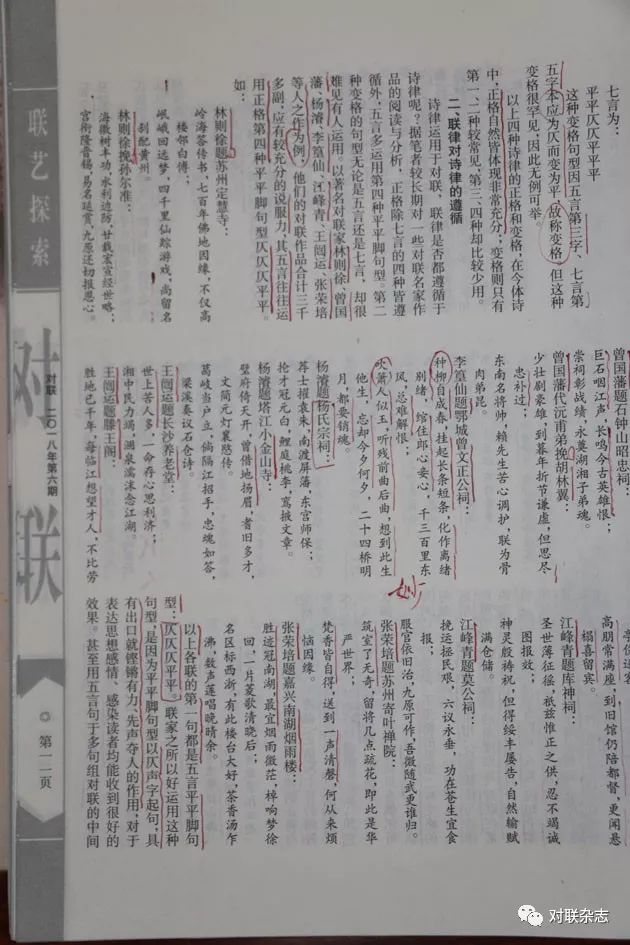 七言为:
平平仄仄平平平
这种变格句型因五言第三字、七言第
五字本应为仄而变为平,故称变格,但这种
变格很罕见,因此无例可举。
以上四种诗律的正格和变格,在今体诗
中,正格自然皆体现非常充分;变格则只有
第一、二种较常见,第三、四种却比较少用。
二、联律对诗律的遵循
诗律运用于对联,联律是否都遵循于
诗律呢?据笔者较长期对一些对联名家作
品的阅读与分析,正格除七言的四种皆遵
循外,五言多运用第四种平平脚句型。第二
种变格的句型无论是五言还是七言,却很
难见有人运用。以著名对联家林则徐、曾国
藩、杨濬、李篁仙、江峰青、王闿运、张荣培
等人之作为例,他们的对联作品合计三千
多副,应有较充分的说服力,其五言往往运
用正格第四种平平脚句型仄仄仄平平。
如:
林则徐题苏州定慧寺:
岭海答传书,七百年佛地因缘,不仅高
楼邻白傅;
岷峨回远梦,四千里仙踪游戏,尚留名
刹配黄州。
林则徐挽孙尔准:
海徼树丰功,水利边防,廿载宏宣经世略;
宫衔隆晋锡,易名延赏,九原还切报恩心。
曾国藩题石钟山昭忠祠:
巨石咽江声,长鸣今古英雄恨;
崇祠彰战绩,永奠湖湘子弟魂。
曾国藩代沅甫弟挽胡林翼:
少壮剧豪雄,到暮年折节谦虚,但思尽
忠补过;
东南名将帅,赖先生苦心调护,联为骨
肉弟昆。
李篁仙题鄂城曾文正公祠:
种柳自成春,挂起长条短条,化作离绪
别绪,绾住郎心妾心,千三百里东
风,总难解恨;
吹箫人似玉,听残前曲后曲,想到此生
他生,忘却今夕何夕,二十四桥明
月,都要销魂。
杨濬题杨氏宗祠:
荐士擢袁朱,南渡屏藩,东宫师保;
抡才冠元白,鲤庭桃李,鸾掖文章。
杨濬题塔江小金山寺:
璧府倚天开,曾借地扬眉,耆旧多才,
文简元灯襄愍传。
葛岐当户立,倘隔江招手,忠魂如答,
梁溪奏议石仓诗。
王闿运题长沙养老堂:
世上苦人多,一命存心思利济;
湘中民力竭,涸泉濡沫念江湖。
王闿运题滕王阁:
胜地已千年,每临江想望才人,不比劳
亭仅送客;
高朋常满座,到旧馆仍陪都督,更闻悬
榻喜留宾。
江峰青题库神祠:
圣世薄征徭,祇兹惟正之供,忍不竭诚
图报效;
神灵殷祷祝,但得绥丰屡告,自然输赋
满仓储。
江峰青题莫公祠:
挽运拯民艰,六议永垂,功在苍生宜食
报;
服官依旧治,九原可作,吾微随武更谁归。
张荣培题苏州寄叶禅院:
筑室了无奇,留将几点疏花,即此是华
严世界;
梵香皆自得,送到一声清磬,何从来烦
恼因缘。
张荣培题嘉兴南湖烟雨楼:
胜迹冠南湖,最宜烟雨微茫,榜响梦徐
回,一片菱歌清晓后;
名区标西浙,有此楼台大好,茶香汤乍
沸,数声莲唱晚晴余。
以上各联的第一句都是五言平平脚句
型:仄仄仄平平。联家之所以好运用这种
句型,是因为平平脚句型以仄声字起句,具
有出口就铿锵有力、先声夺人的作用,对于
表达思想感情、感染读者均能收到很好的
效果。甚至用五言句于多句组对联的中间
妙
联艺探索
对联
对联 二〇一八年第六期
第一一页
对联杂志